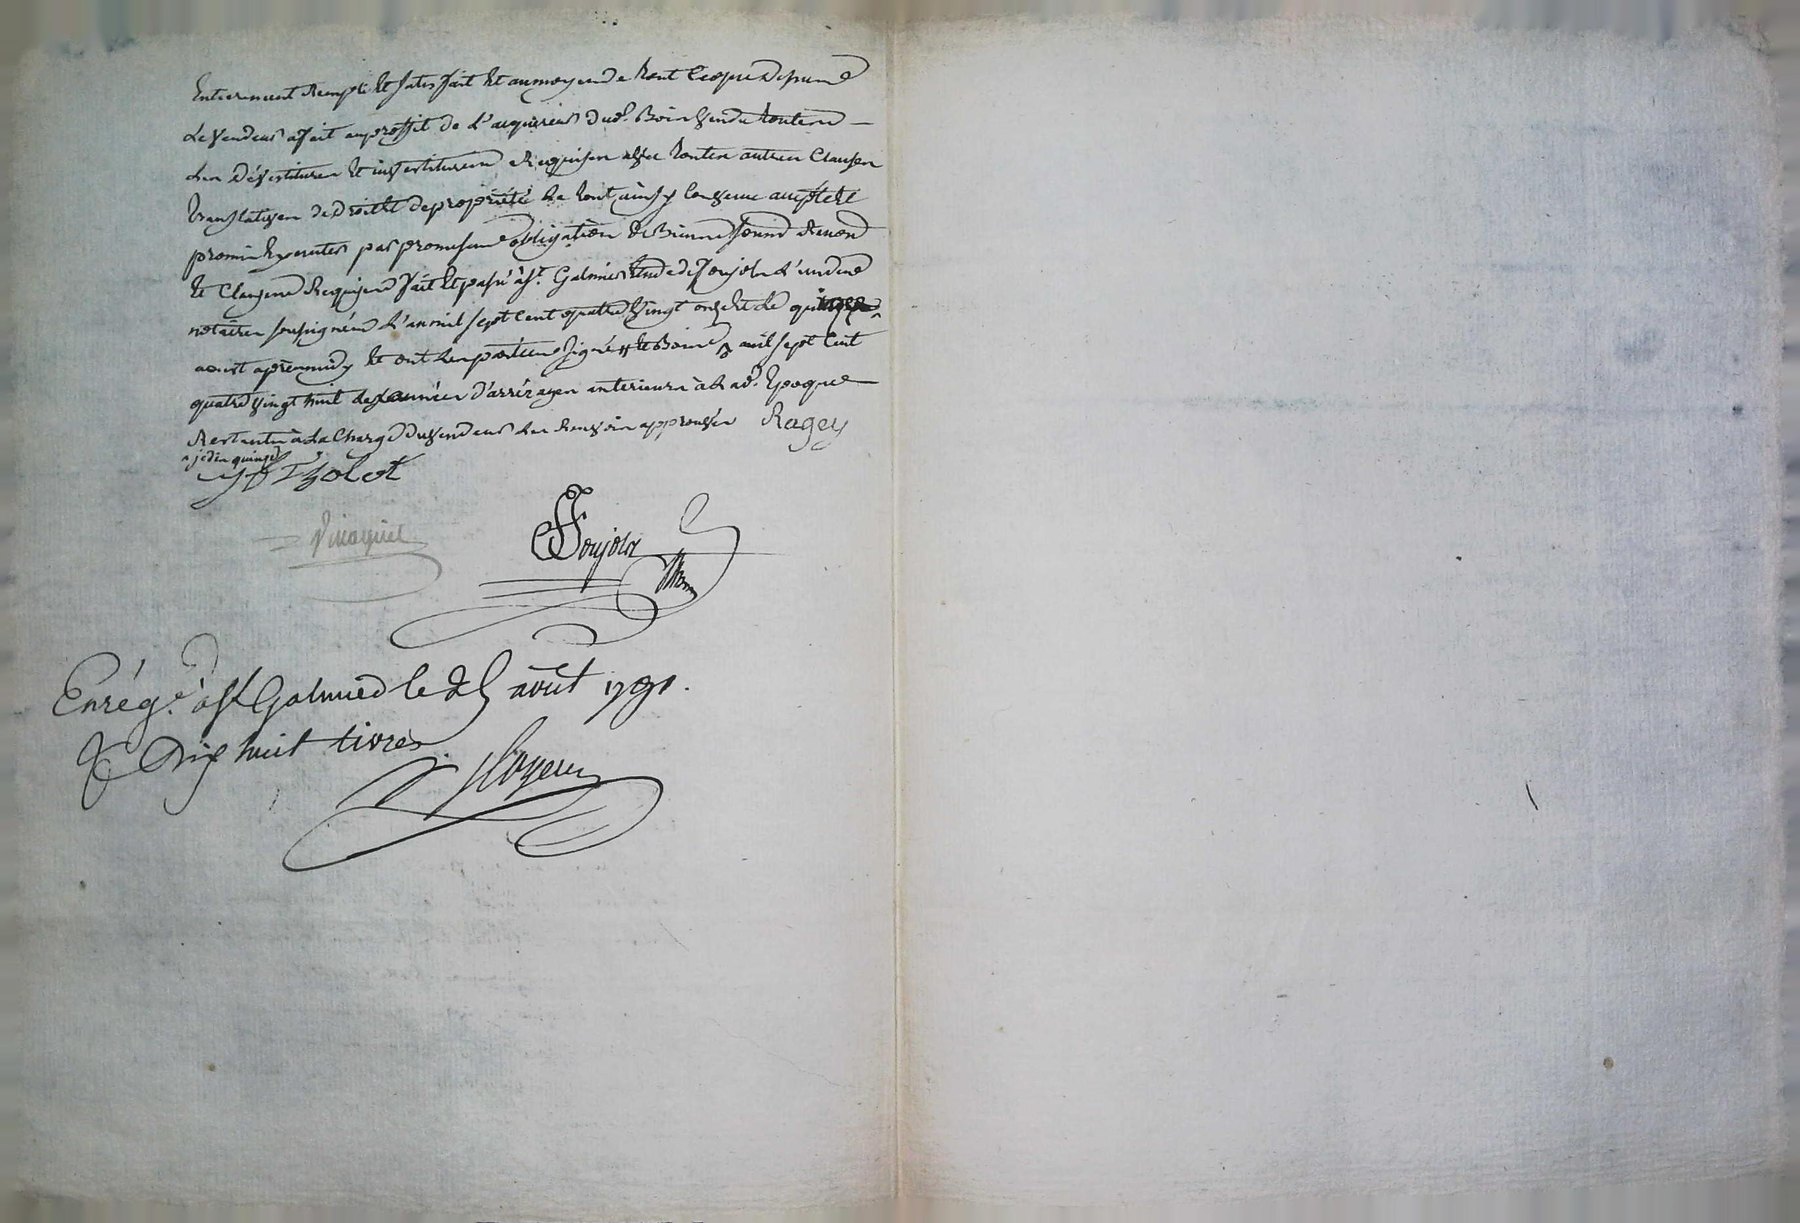 Entierement Rempli et satisfait et au moyen de tout ce que dessus
le vendeur a fait au proffit de l'acquereur dud. Bois vendu toutes
les dévestitures et investitures Requises avec toutes autres Clauses
translatives de droit et de propriété le tout ainsy Convenu
promis Executer par promesse obligation de Biens soumis Renon
et Clauses Requises fait et passé à St. Galmier Etude de Soujols l'un des
notaires soussignés l'an mil sept cent quatre vingt onze et le
aoust après midy et ont les parties signé mil sept cent
quatre vingt huit les années d'arrérages anterieurs à lad. Epoque
Restantes à la Charge du vendeur les Renvois approuvés Ragey
je dis quinze
Soujols
Enrég. à St Galmier le 25 août 1791.
R Dix huit livres